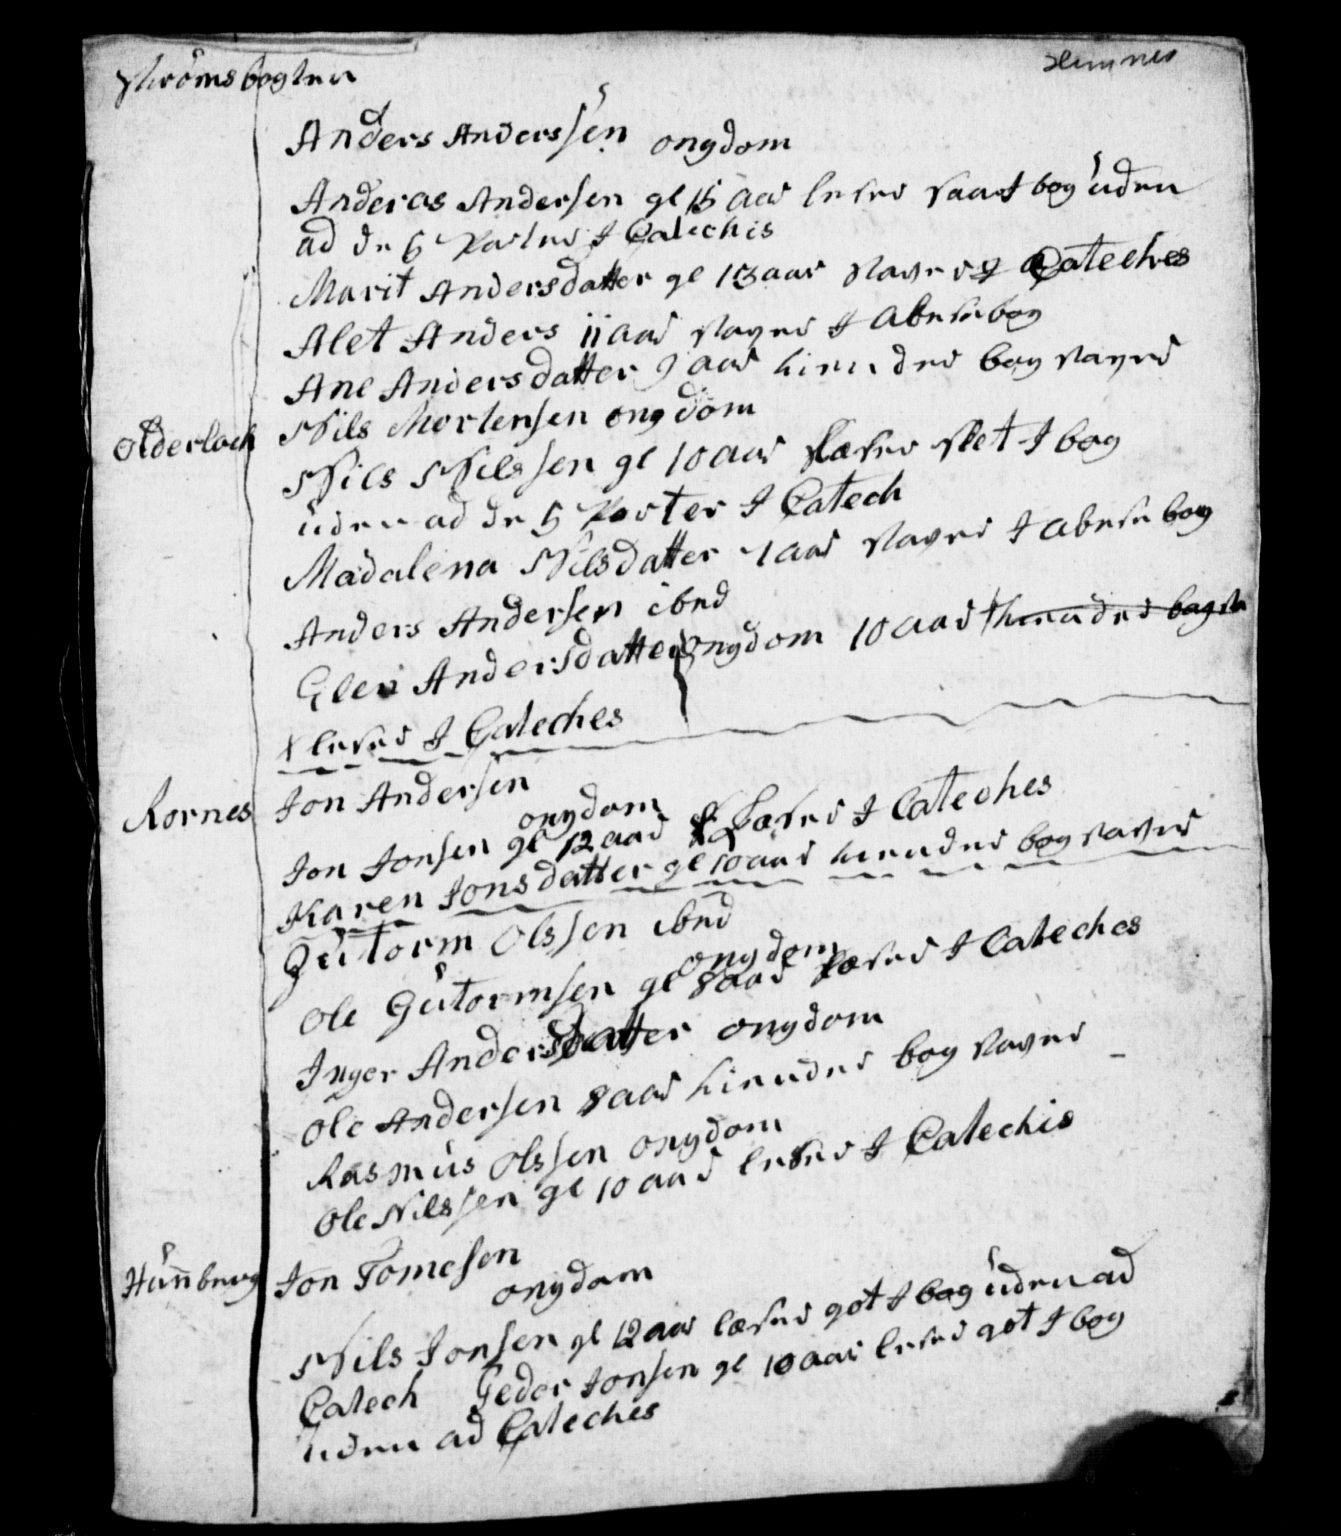 Hemnes
Strömsbogten
Anders Anderssen ongdom
Anderas Andersen gl 15 aar leser saat J bog uden
ad de 5 Parter J Catechis
Marit Andersdatter gl 13 aar staver J Cateches
Alet Anders 11 aar staver J Abesebog
Ane Andersdatter 9 aar kiender bog staver
Olderbach Nils Mortensen ongdom
Nils Nilssen gl 10 aar Læser slet J bog
uden ad de 5 Parter J Catech
Madalena Nilsdatter 7 aar staver J abese bog
Anders Andersen ibed
Elen Andersdatter ongdom 10 aar kiender bogsta
x leser J Cateches
Kornes Jon Andersen
ongdom
Jon Jonsen gl 12 aar Læser J Cateches
Karen Jonsdatter gl 10 aar kiender bog staver
Gutorm Olssen ibed
ongdom
Ole Gutormsen gl 8 aar Læser J Cateches
Inger Andersdatter ongdom
Ole Andersen 8 aar kiender bog staver
Rasmus Olssen ongdom
Ole Nilssen gl 10 aar leser J Catechis
Hunberg Jon Tomesen
ongdom
Nils Jonsen gl 12 aar læser got J bog uden ad
Catech Peder Jonsen gl 10 aar leser got J bog
uden ad Cateches